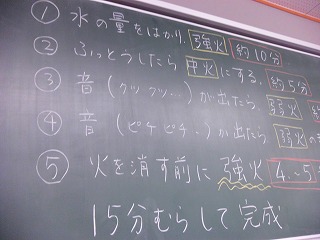 ① 水の量をはかり、強火 約10分
② ふっとうしたら 中火にする。約5分
③ 音 (グツグツ…) が出たら、弱火
④ 音 (ピチピチ..) が出たら 弱火の
⑤ 火を消す前に 強火 4~5
15分むらして完成